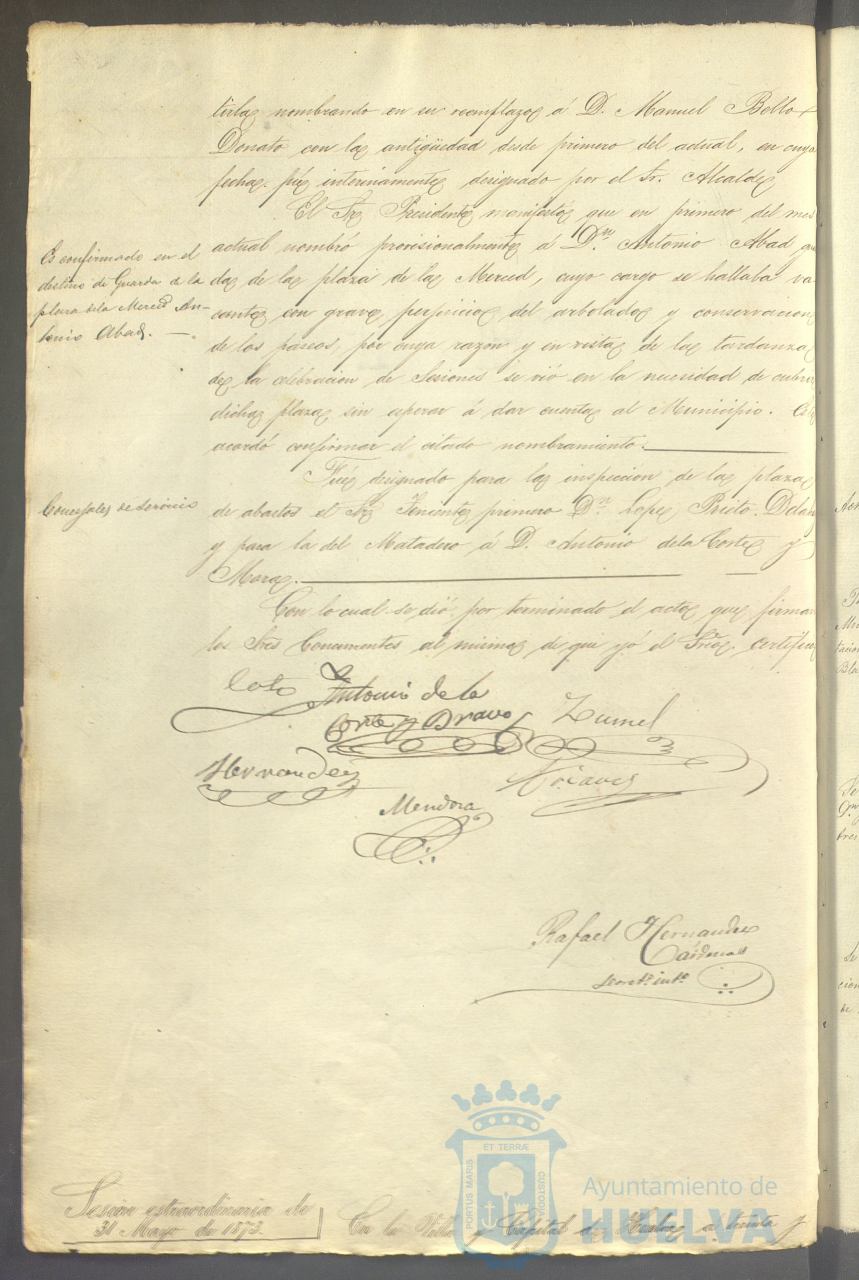 tirla, nombrando en su reemplazo á D. Manuel Bello
Donato con la antigüedad desde primero del actual, en cuya
fecha fué interinamente designado por el Sr. Alcalde
Es confirmado en el
destino de Guarda de la
plaza dela Merced An-
tonio Abad. —
El Sr Presidente manifestó que en primero del mes
actual nombró provisionalmente á Dn. Antonio Abad guar
da de la plaza de la Merced, cuyo cargo se hallaba va-
cante con grave perjuicio del arbolado y conservacion
de los paseos, por cuya razón y en vista de la tardanza
de la celebracion de Sesiones se vió en la necesidad de cubrir
dicha plaza sin esperar á dar cuenta al Municipio.
acordó confirmar el citado nombramiento.
Concejales de servicio
Fué designado para la inspeccion de la plaza
de abastos el Sr Teniente primero Dn. Lope Prieto
y para la del Matadero á D. Antonio dela Corte y
Mora.
Con lo cual se dió por terminado el acto que firman
los Sres Concurrentes al mismo de que yó el Srio. certifico
Coto
Antonio de la
Corte y Bravo
Zumel
Hernandez
Mendoza
Rafael Hernandez
Cárdenas
Secret.º int.º
Sesion extraordinaria de
31 Mayo de 1873.
En la Villa y Capital de Huelva á treinta y
ET TERRÆ
PORTUS MARIS
CUSTODIA
Ayuntamiento de
HUELVA